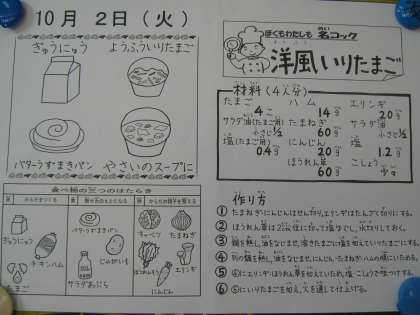 10月 2日(火)
ぎゅうにゅう
ようふういりたまご
バターうずまきパン
やさいのスープに
食べ物の三つのはたらき
ぎゅうにゅう
チキンハム
たまご
バターうずまきパン
じゃがいも
サラダあぶら
キャベツ
たまねぎ
ほうれんそう
エリンギ
にんじん
ぼくもわたしも 名コック
洋風いりたまご
材料(4人分)
たまご 4こ
ハム 14g
エリンギ 20g
サラダ油(たまご用) 小さじ½
たまねぎ 60g
サラダ油 小さじ½
塩(たまご用) 0.4g
にんじん 20g
塩 1.2g
ほうれん草 60g
こしょう 少々
作り方
① たまねぎ・にんじんはせん切り、エリンギはたんざく切りにする。
② ほうれん草は2cm位に切って塩ゆでし、水切りしておく。
③ 鍋を熱し、油をなじませ、溶きたまごに塩を加えていりたまごにする。
④ 別の鍋を熱し、油をなじませ、にんじん・たまねぎ・ハムの順にいためる。
⑤ ④にエリンギ・ほうれん草を加えていため、塩・こしょうで味つけする。
⑥ ⑤にいりたまごを加え、火を通して仕上げる。